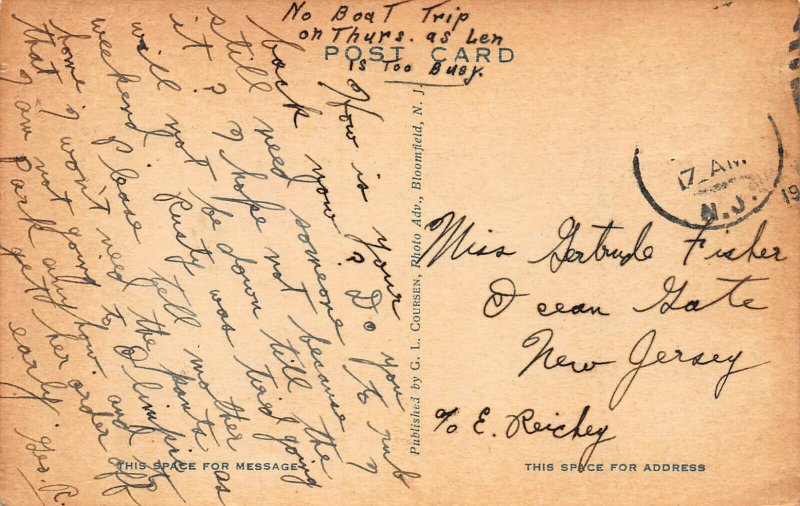 No Boat Trip
on Thurs. as Len
is Too Busy.
POST CARD
How is your
back now? Do you
still need someone to rub
it? I hope not because I
will not be down till the
weekend. Rusty was told going
Please tell mother
home I won't need the pants as
that I am not going to Olimpic
Park anyhow and
get her order off
early. Geo. R.
THIS SPACE FOR MESSAGE
Published by G. L. COURSEN, Photo Adv., Bloomfield, N. J.
7 AM
N.J.
19
Miss Gertrude Fisher
Ocean Gate
New Jersey
c/o E. Reichey
THIS SPACE FOR ADDRESS